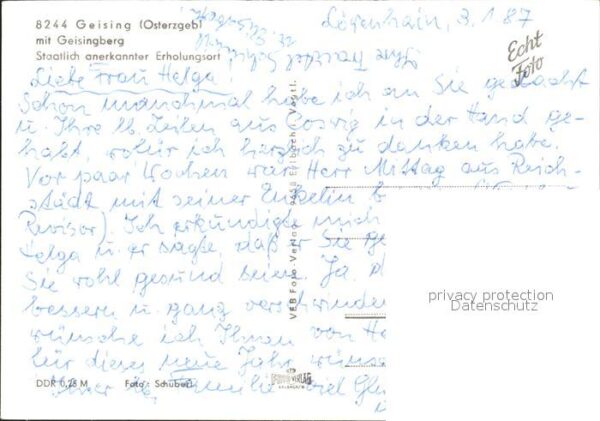 8244 Geising (Osterzgeb)
mit Geisingberg
Staatlich anerkannter Erholungsort
Löwenhain, 3.1.87
Echt
Foto
Liebe Frau Helga!
Schon manchmal habe ich an Sie gedacht
u. Ihre lb. Zeilen aus Coswig in der Hand ge-
habt, wofür ich herzlich zu danken habe.
Vor paar Wochen war Herr Mittag aus Reich-
städt mit seiner Enkelin b
Revisor). Ich erkundigte mich
Helga u. er sagte, daß er Sie ge
Sie wohl gesund seien. Ja. d
bessern u. ganz verschwinden
wünsche ich Ihnen von He
für dieses neue Jahr wünsc
Ihrer lb. Familie viel Glü
VEB Foto-Verlag 9450 Erlbach / Vogtl.
DDR 0,25 M
Foto: Schubert
FOTO-VERLAG
ERLBACH/V.
privacy protection
Datenschutz